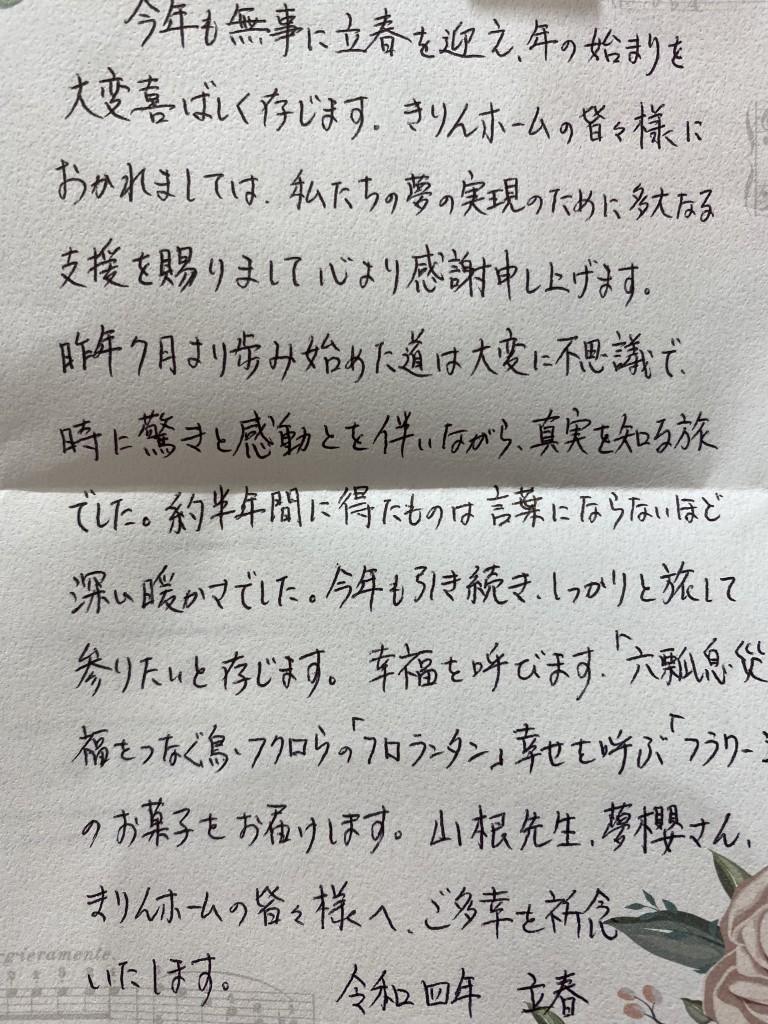 今年も無事に立春を迎え、年の始まりを
大変喜ばしく存じます。きりんホームの皆々様に
おかれましては、私たちの夢の実現のために多大なる
支援を賜りまして心より感謝申し上げます。
昨年7月より歩み始めた道は大変に不思議で、
時に驚きと感動とを伴いながら、真実を知る旅
でした。約半年間に得たものは言葉にならないほど
深い暖かさでした。今年も引き続き、しっかりと旅して
参りたいと存じます。幸福を呼びます、「六瓢息災
福をつなぐ鳥・フクロらの「フロランタン」幸せを呼ぶ「フラワー
のお菓子をお届けします。山根先生、夢櫻さん、
まりんホームの皆々様へ、ご多幸を祈念
いたします。
令和四年 立春
gieramente